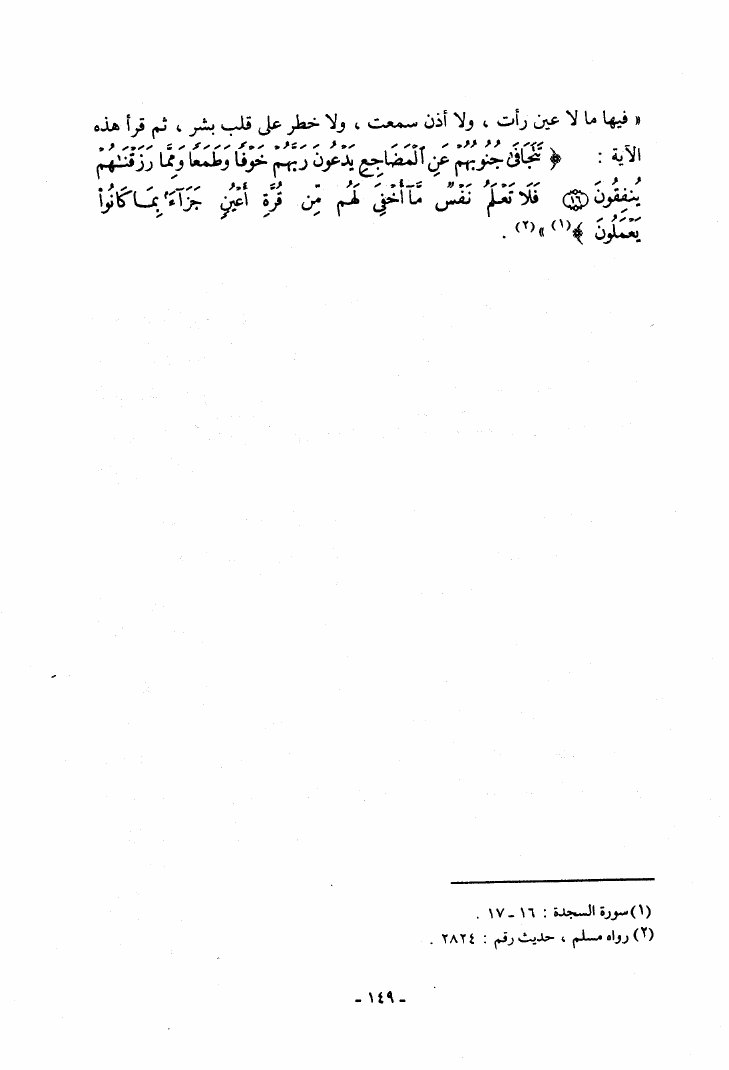 « فيها ما لا عين رأت ، ولا أذن سمعت ، ولا خطر على قلب بشر ، ثم قرأ هذه
الآية : ﴿ تَتَجَافَىٰ جُنُوبُهُمْ عَنِ ٱلْمَضَاجِعِ يَدْعُونَ رَبَّهُمْ خَوْفًا وَطَمَعًا وَمِمَّا رَزَقْنَـٰهُمْ
يُنفِقُونَ ۝١٦ فَلَا تَعْلَمُ نَفْسٌ مَّآ أُخْفِىَ لَهُم مِّن قُرَّةِ أَعْيُنٍ جَزَآءًۢ بِمَا كَانُوا۟
يَعْمَلُونَ ﴾(١) »(٢) .
(١) سورة السجدة : ١٦ ـ ١٧ .
(٢) رواه مسلم ، حديث رقم : ٢٨٢٤ .
- ١٤٩ -